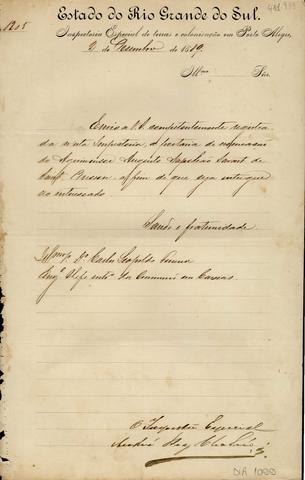 Estado do Rio Grande do Sul.
Inspectoria Especial de terras e colonisação em Porto Alegre,
2 de Dezembro de 1889.
Illmo. Snr.
Envio a V.S. competentemente registra
da n'esta Inspectoria, a portaria de nomeação
do Agrimensor Augusto Napoleão de
afim de que seja entregue
ao interessado
Saude e fraternidade
Dr. Carlos Leopoldo
Engº Chefe da Commissão em Caxias.
O Inspector Especial
DIR 1099